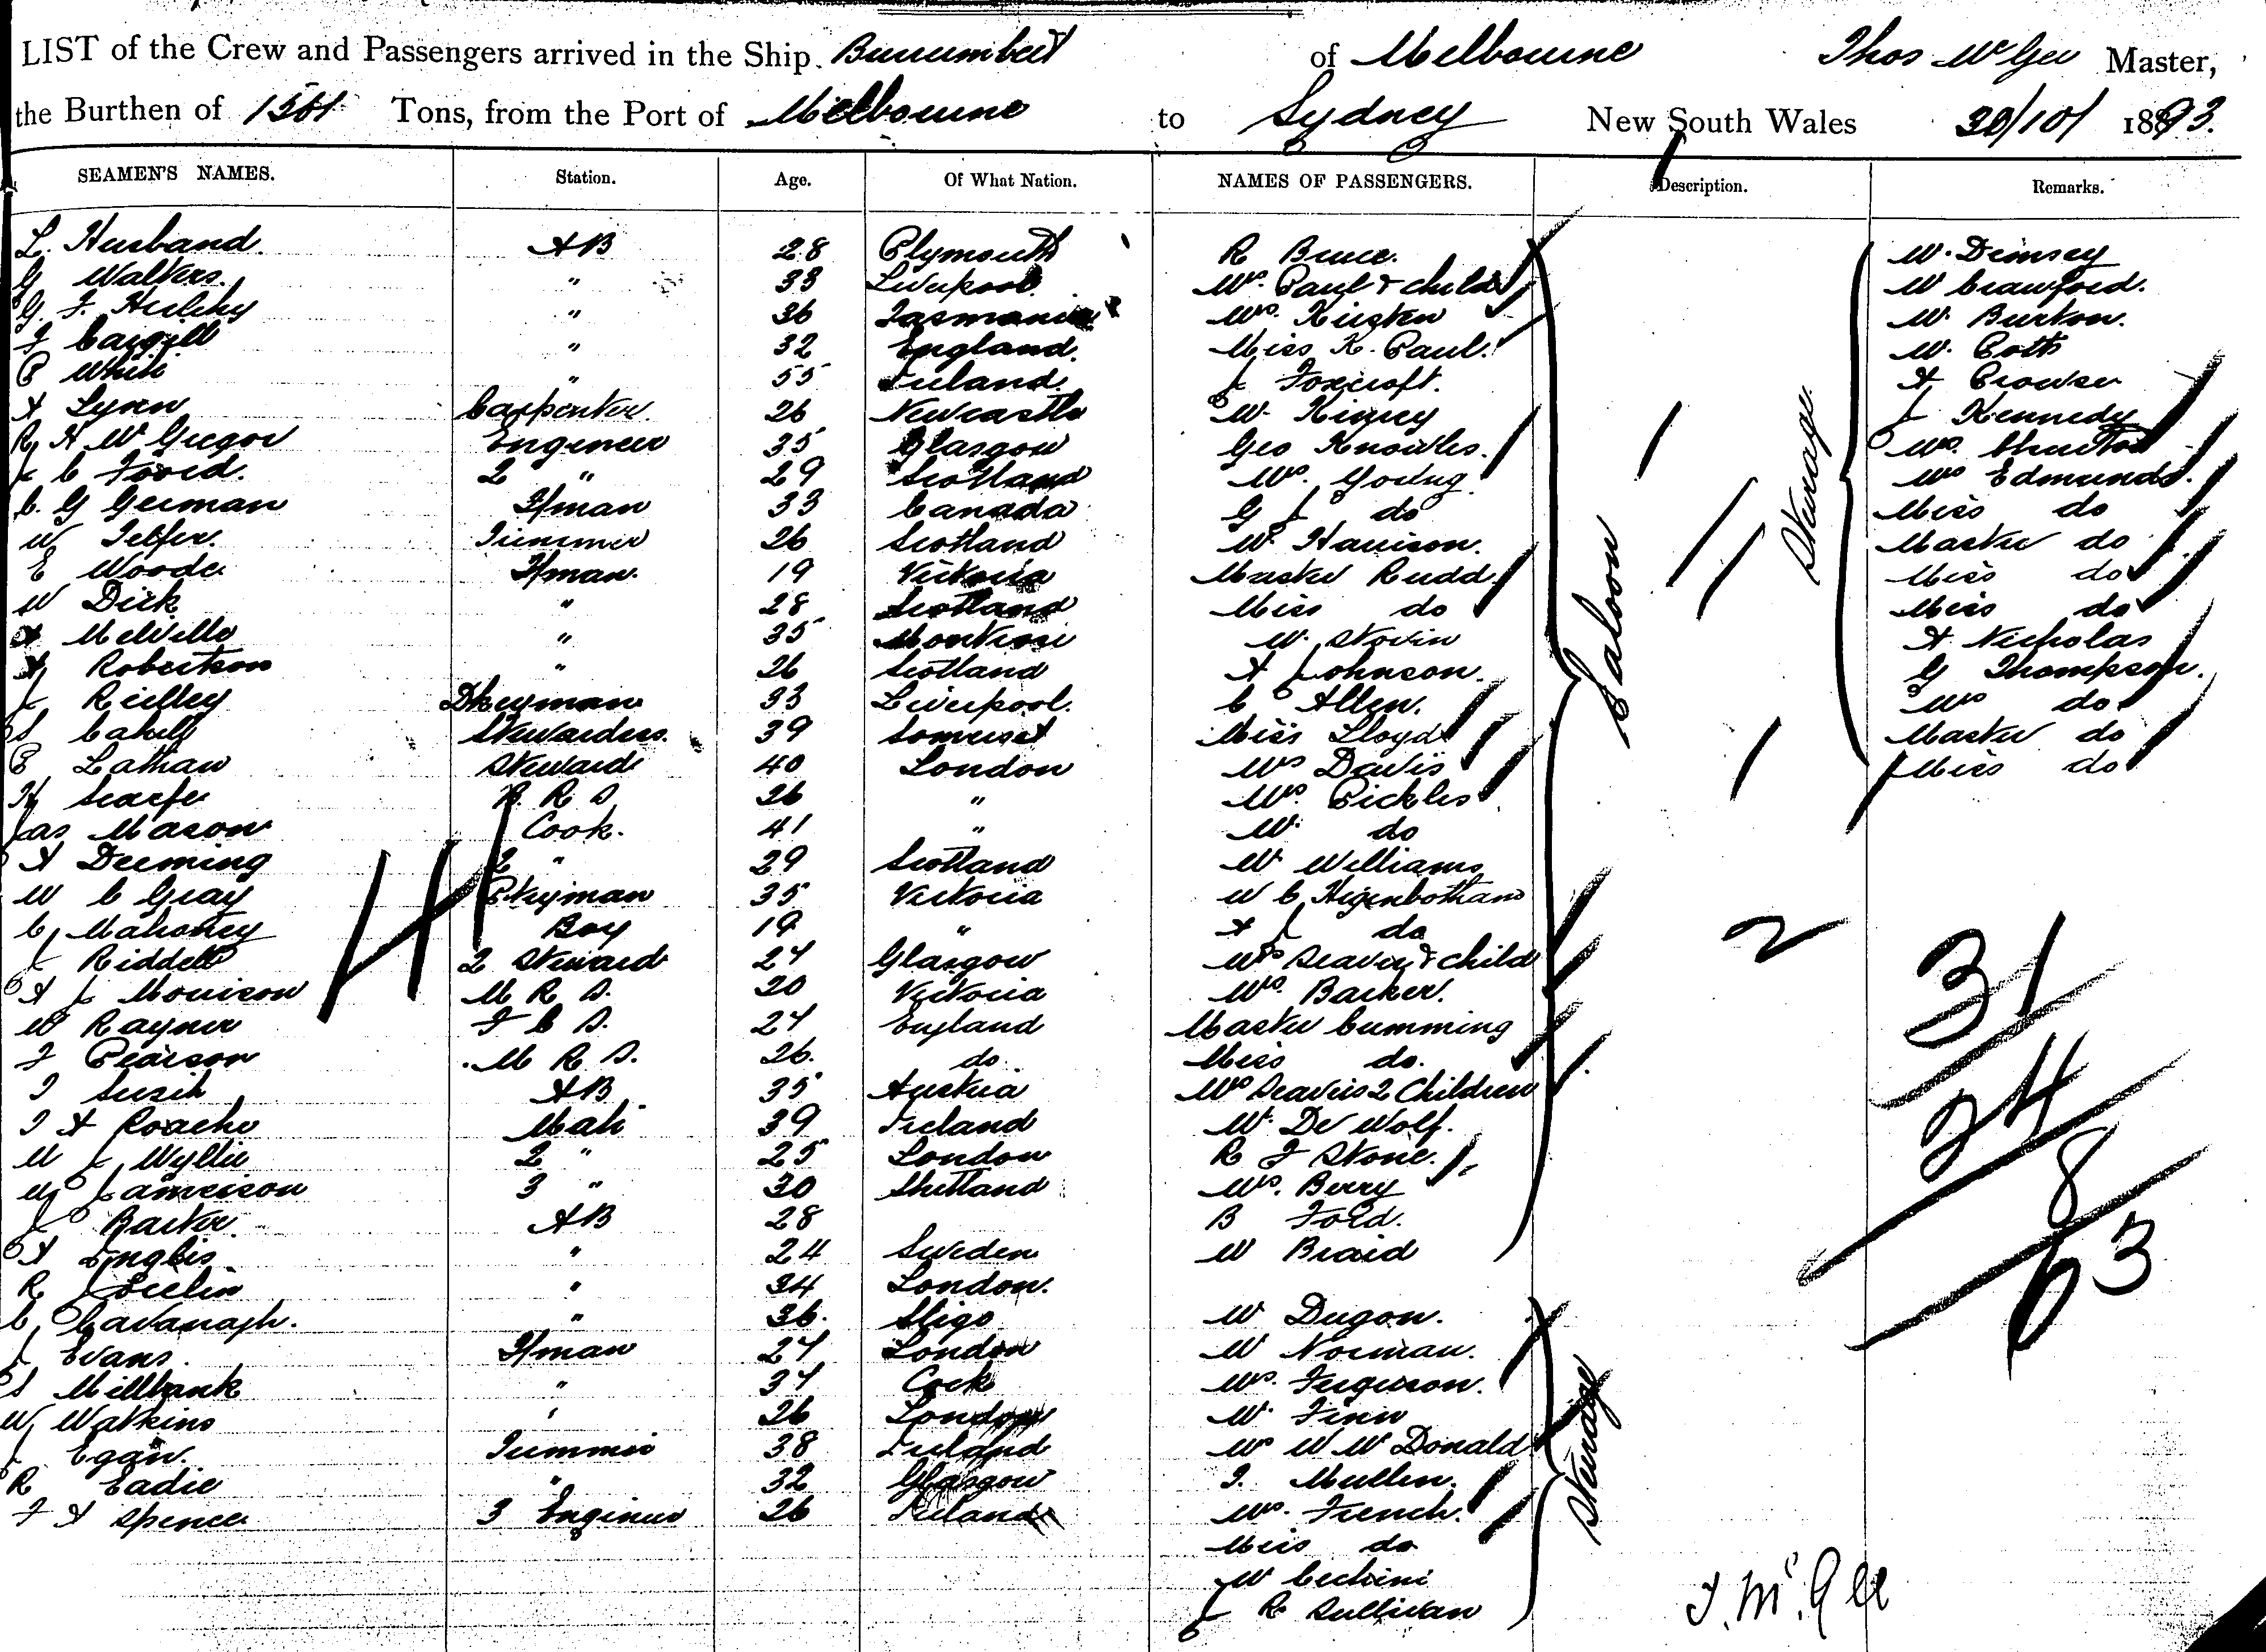 LIST of the Crew and Passengers arrived in the Ship Burrumbeet of Melbourne Thos McGee Master,
the Burthen of Tons, from the Port of Melbourne to Sydney New South Wales 30/10/ 1893.
SEAMEN'S NAMES. Station. Age. Of What Nation. NAMES OF PASSENGERS. Description. Remarks.
L. Husband. AB 28 Plymouth R Bruce. W. Dimsey
G Walters. " 33 Liverpool. Mrs. Paul & child W Crawford.
G. F. " 36 Tasmania Mrs. Kirsten W. Burton.
J Cargill " 32 England. Miss K. Paul. W. Potts
P White " 55 Ireland. J Foxcroft. A Prowse
A Lynn Carpenter. 26 Newcastle W. Kinsey J Kennedy
R H McGregor Engineer 35 Glasgow Geo Knowles. Mrs.
J C Foord. 2 " 29 Scotland Mrs. Gording Mrs Edmunds.
C. G German F/man 33 Canada G J do Miss do
W Telfer. Trimmer 26 Scotland W. Harrison. Master do
E Woods F/man. 19 Victoria Master Rudd. Miss do
W Dick " 28 Scotland Miss do Miss do
A Melville " 35 Montrose W. Stovin A Nicholas
A Robertson " 26 Scotland A Johnson. G Thompson.
J Reilley Dkeyman 33 Liverpool. C Allen. Mrs do
S Cahill Stewardess. 39 Somerset Miss Lloyd Master do
P Lathan Steward 40 London Mrs Davis Miss do
H Scarfe B. R S 26 " Mrs. Pickles
Jas Mason Cook. 41 " W. do
A Deeming 2 " 29 Scotland W Williams
W C Gray Pkeyman 35 Victoria W C Higenbotham
C Mahoney Boy 19 " A J do
J Riddell 2 Steward 24 Glasgow Mrs & child
A J Morrison M R S. 20 Victoria Mrs. Barker.
W Rayner F C S. 24 England Master Cumming
F Pearson M R S. 26. do Miss do.
AB 35 Austria Mrs 2 Children
J A Roache Mate 39 Ireland W. De Wolf.
W J Wyllie 2 " 25 London R J Stone.
W Jamieson 3 " 30 Shetland Mrs. Berry
J Barker. AB 28 B Ford.
A Inglis " 24 Sweden W Braid
R " 34 London.
C Cavanagh. " 36. Sligo W Dugon.
J Evans. F/man 24 London W Norman.
S Millbank " 34 Cork Mrs. Ferguson.
W Watkins " 26 London W. Finn
J Egan. Trimmer 38 Ireland Mrs W McDonald
R Eadie " 32 Glasgow J. Mullen.
F A Spence 3 Engineer 26 Ireland Mrs. French.
Miss do
W Cechini
J R Sullivan
Saloon
Steerage
Steerage
2
31
24
8
63
T. McGee